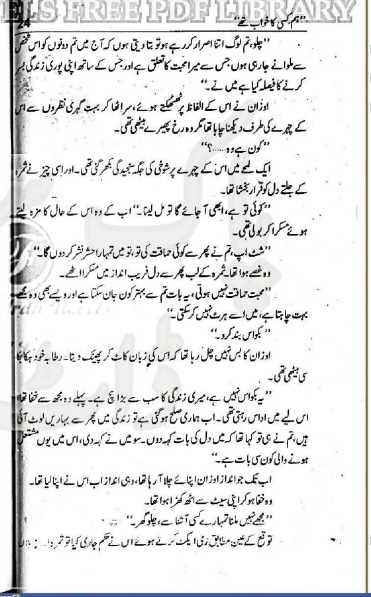 ELS FREE PDF LIBRARY
24
"ہم کسی کا خواب تھے"
"چلو، تم لوگ اتنا اصرار کر رہے ہو تو بتا دیتی ہوں کہ آج میں تم دونوں کو اس شخص
سے ملوانے جا رہی ہوں جس سے میرا محبت کا تعلق ہے اور جس کے ساتھ اپنی پوری زندگی بسر
کرنے کا فیصلہ کیا ہے میں نے۔"
اوزان نے اس کے الفاظ پر ٹھٹھکتے ہوئے، سر اٹھا کر بہت گہری نظروں سے اس
کے چہرے کی طرف دیکھنا چاہا تھا مگر وہ رخ پھیرے بیٹھی تھی۔
"کون ہے وہ ......؟"
ایک لمحے میں اس کے چہرے پر شوخی کی جگہ سنجیدگی بکھر گئی تھی۔ اور اسی چیز نے ثمرہ
کے جلتے دل کو قرار بخشا تھا۔
"کوئی تو ہے، ابھی آ جائے گا تو مل لینا۔" اب کے وہ اس کے حال کا مزہ لیتے
ہوئے مسکرا کر بولی تھی۔
"شٹ اپ، تم نے پھر سے کوئی حماقت کی تو، تو میں تمہارا حشر نشر کر دوں گا۔"
وہ غصے ہوا تھا۔ ثمرہ کے لب پھر سے دل فریب انداز میں مسکرا اٹھے۔
"محبت حماقت نہیں ہوتی، یہ بات تم سے بہتر کون جان سکتا ہے اور ویسے بھی وہ مجھے
بہت چاہتا ہے، میں اسے ہرٹ نہیں کر سکتی۔"
"بکواس بند کرو۔"
اوزان کا بس نہیں چل رہا تھا کہ اس کی زبان کاٹ کر پھینک دیتا۔ رطابہ خود ہکا بکا
سی بیٹھی تھی۔
"یہ بکواس نہیں ہے، میری زندگی کا سب سے بڑا سچ ہے۔ پہلے وہ مجھ سے خفا تھا
اس لیے میں اداس رہتی تھی۔ اب ہماری صلح ہو گئی ہے تو زندگی میں پھر سے بہاریں لوٹ آئی
ہیں، تم نے ہی تو کہا تھا کہ میں دل کی بات کہہ دوں۔ سو میں نے کہہ دی، اس میں یوں مشتعل
ہونے والی کون سی بات ہے۔"
اب تک جو انداز اوزان اپنائے چلا آ رہا تھا، وہی انداز اب اس نے اپنا لیا تھا۔
وہ خفا ہو کر اپنی سیٹ سے اٹھ کھڑا ہوا تھا۔
"مجھے نہیں ملنا تمہارے کسی آشنا سے، چلو گھر۔"
توقع کے عین مطابق ری ایکٹ کرتے ہوئے اس نے حکم جاری کیا تو ثمرہ